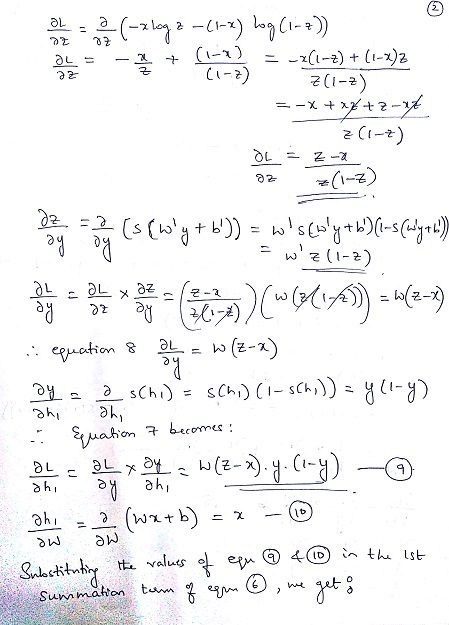 ②
∂L/∂z = ∂/∂z (-x log z - (1-x) log (1-z))
∂L/∂z = - x/z + (1-x)/(1-z) = -x(1-z) + (1-x)z / z(1-z)
= -x + xz + z - xz / z(1-z)
∂L/∂z = z-x / z(1-z)
∂z/∂y = ∂/∂y (s(w'y + b')) = w's(w'y+b')(1-s(w'y+b'))
= w' z(1-z)
∂L/∂y = ∂L/∂z × ∂z/∂y = (z-x / z(1-z)) (w(z(1-z))) = w(z-x)
∴ equation 8 ∂L/∂y = w(z-x)
∂y/∂h₁ = ∂/∂h₁ s(h₁) = s(h₁)(1-s(h₁)) = y(1-y)
∴ Equation 7 becomes:
∂L/∂h₁ = ∂L/∂y × ∂y/∂h₁ = w(z-x).y.(1-y) — ⑨
∂h₁/∂w = ∂/∂w (wx+b) = x — ⑩
Substituting the values of eqn ⑨ & ⑩ in the 1st
summation term of eqn ⑥, we get :